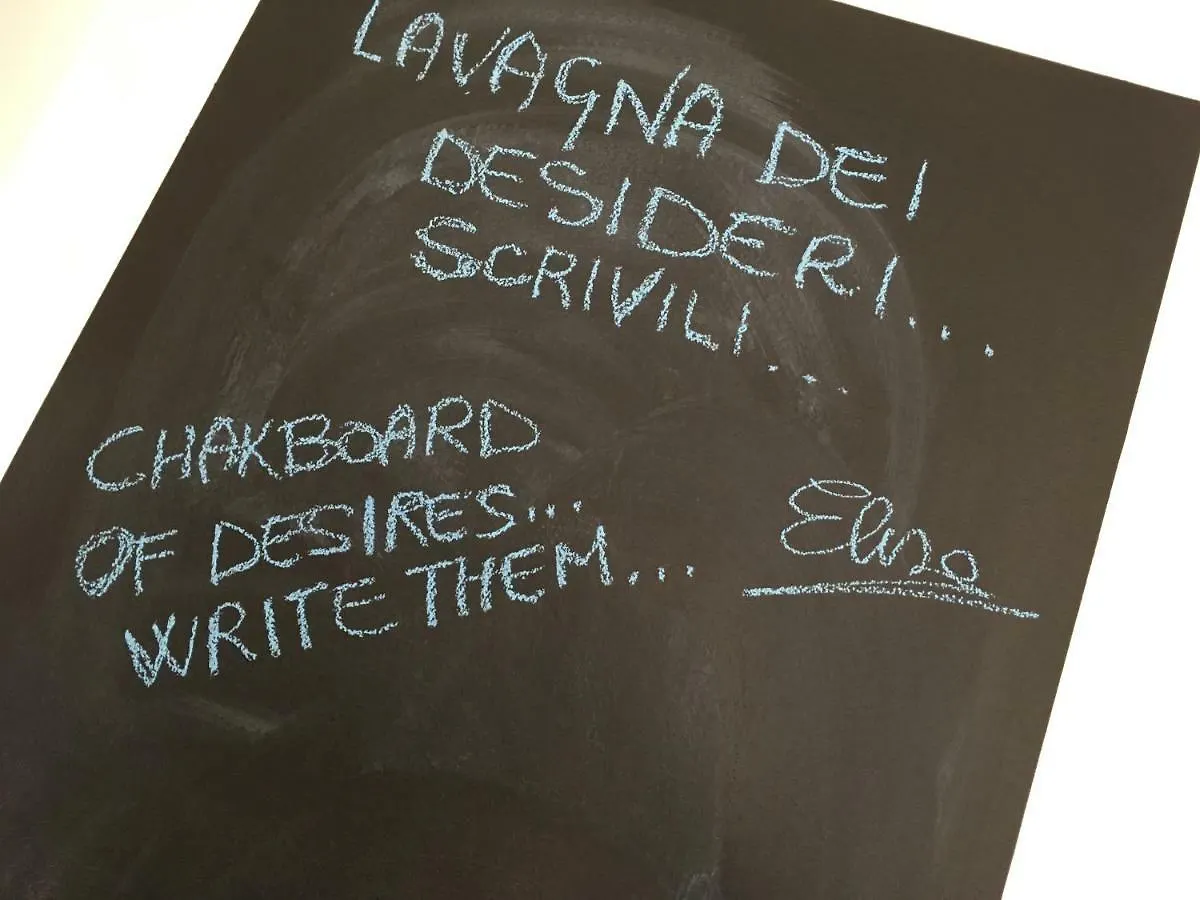 LAVAGNA DEI
DESIDERI...
SCRIVILI....
CHAKBOARD
OF DESIRES...
WRITE THEM...
Elisa